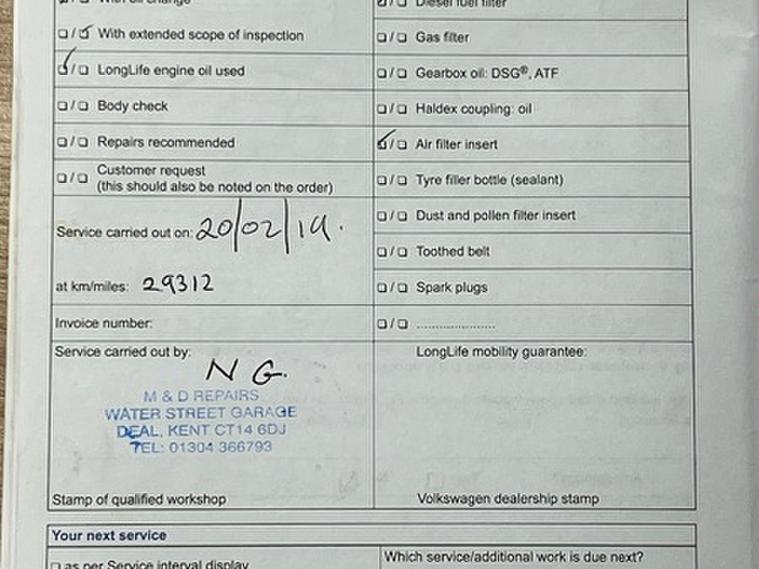 With oil change
Diesel fuel filter
With extended scope of inspection
Gas filter
LongLife engine oil used
Gearbox oil: DSG®, ATF
Body check
Haldex coupling: oil
Repairs recommended
Air filter insert
Customer request
(this should also be noted on the order)
Tyre filler bottle (sealant)
Service carried out on: 20/02/19.
Dust and pollen filter insert
Toothed belt
at km/miles: 29312
Spark plugs
Invoice number:
.......................
Service carried out by:
LongLife mobility guarantee:
N G.
M & D REPAIRS
WATER STREET GARAGE
DEAL, KENT CT14 6DJ
TEL: 01304 366793
Stamp of qualified workshop
Volkswagen dealership stamp
Your next service
as per Service interval display
Which service/additional work is due next?